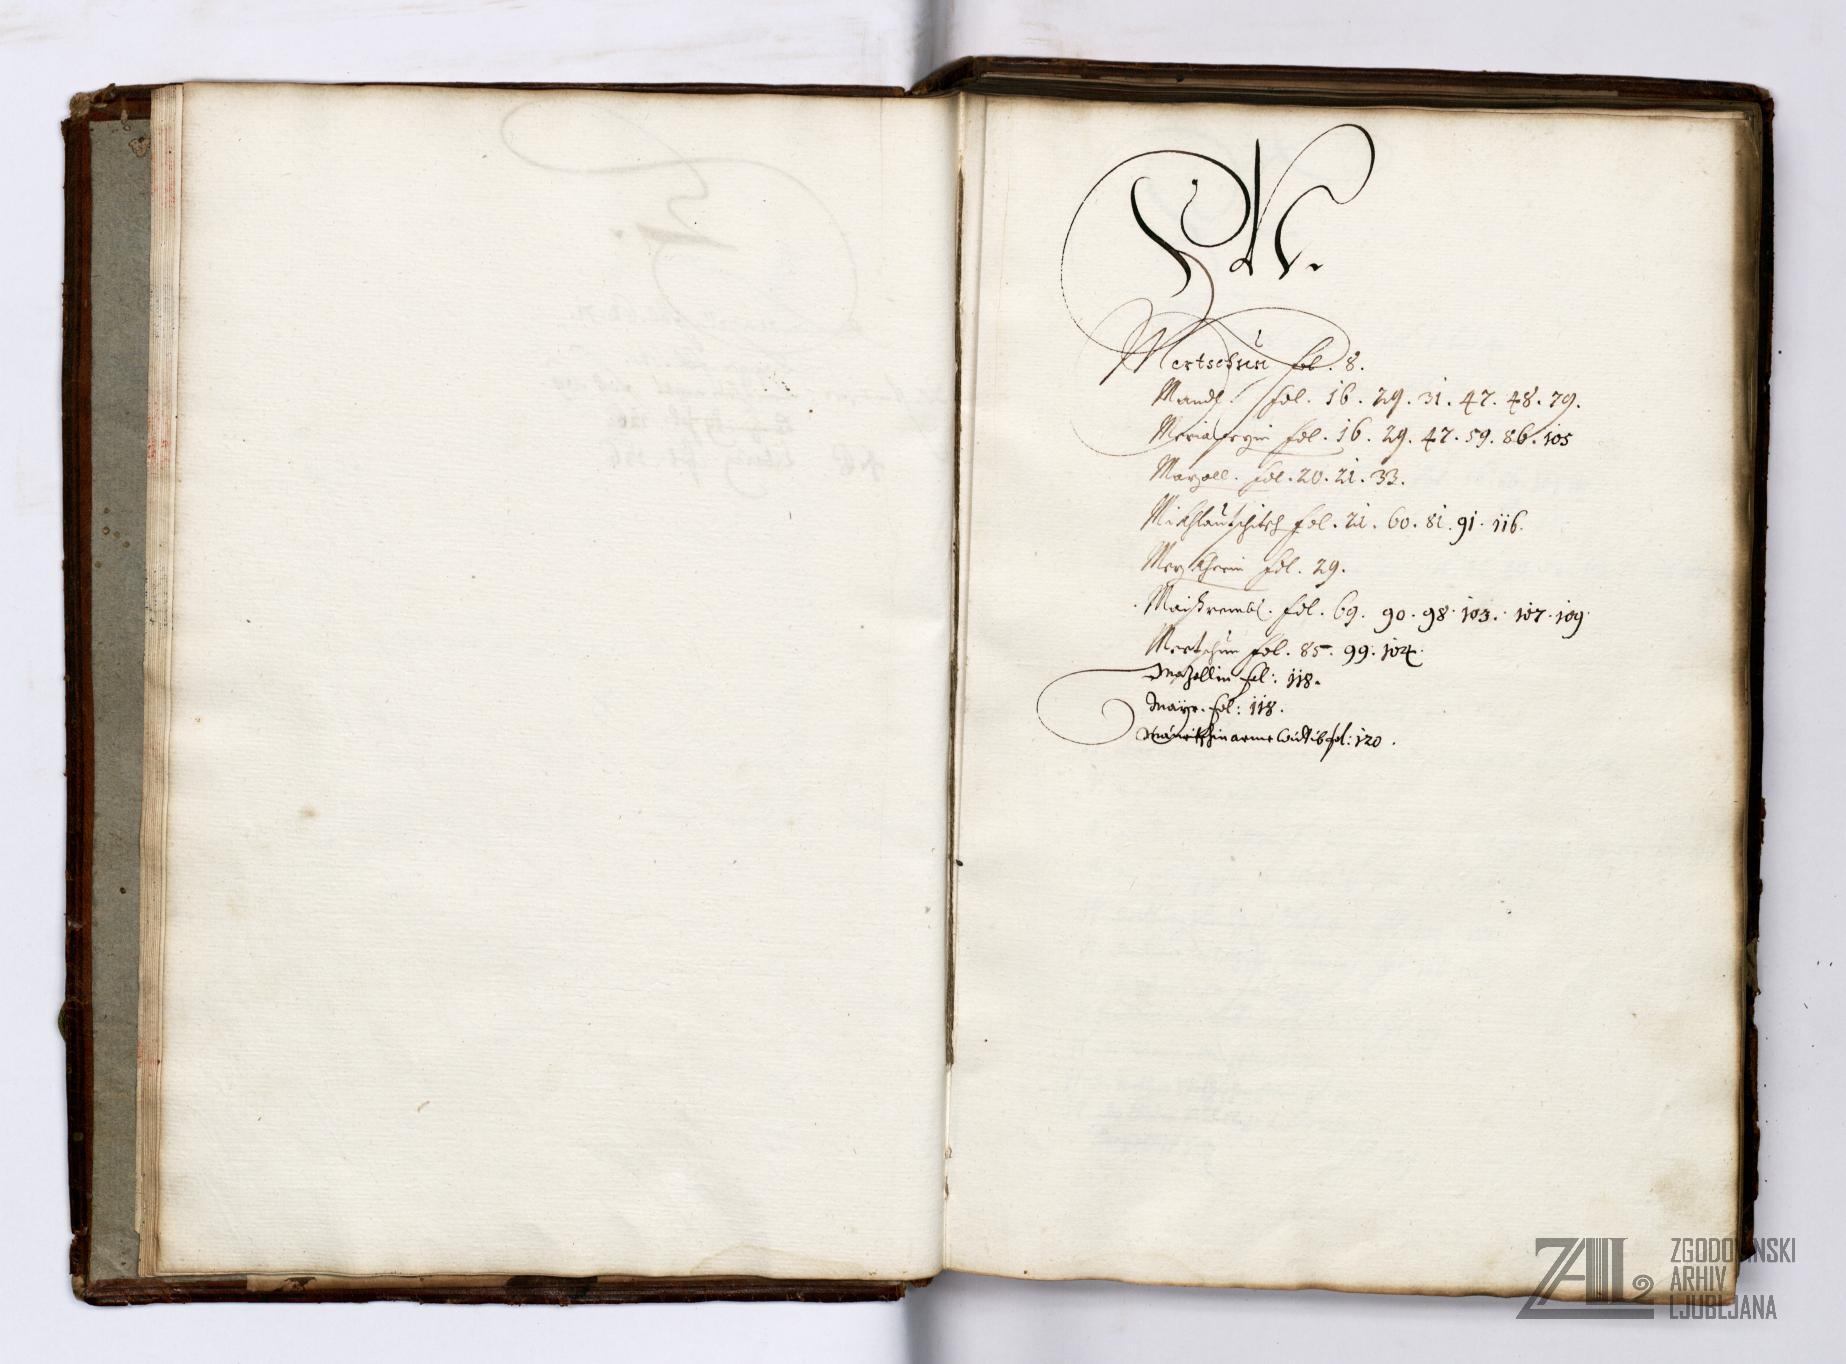 M.
Mertschun fol. 8.
Mandl. fol. 16. 29. 31. 47. 48. 79.
fol. 16. 29. 47. 59. 86. 105
Marzoll. fol. 20. 21. 33.
Mikhlautschitsch fol. 21. 60. 81. 91. 116.
fol. 29.
fol. 69. 90. 98. 103. 107. 109
Mertschun fol. 85. 99. 104.
Mazollin fol: 118.
Mayr. fol: 118.
arme Widtib fol: 120.
ZAL ZGODOVINSKI
ARHIV
LJUBLJANA